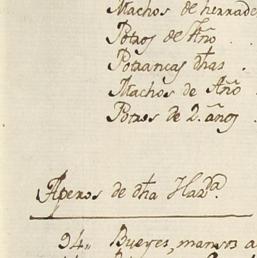 Machos de herrade
Potros de Año .
Potrancas dhas .
Machos de Año .
Potros de 2. años .
Aperos de dha Hazda.
94,, Bueyes, mansos a